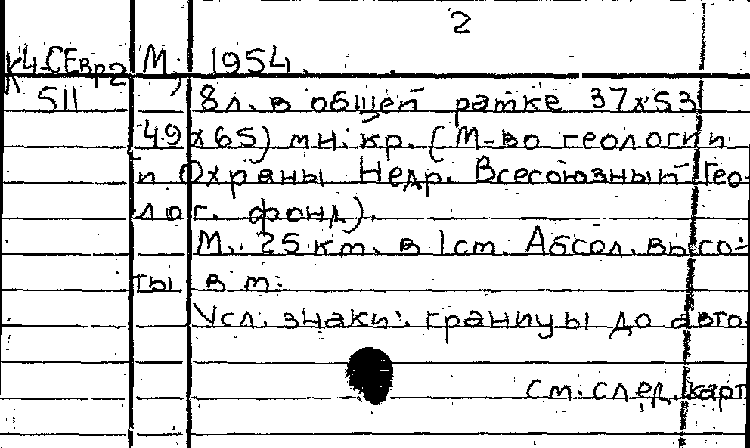 2
К4-СЕвр2 М., 1954.
511 8л. в общей рамке 37х53
(49х65) мн. кр. (М-во геологии
и Охраны Недр. Всесоюзный Гео-
лог. фонд).
М. 25 км. в 1см. Абсол. высо-
ты в м.
Усл. знаки: границы до авто
См. след. карт